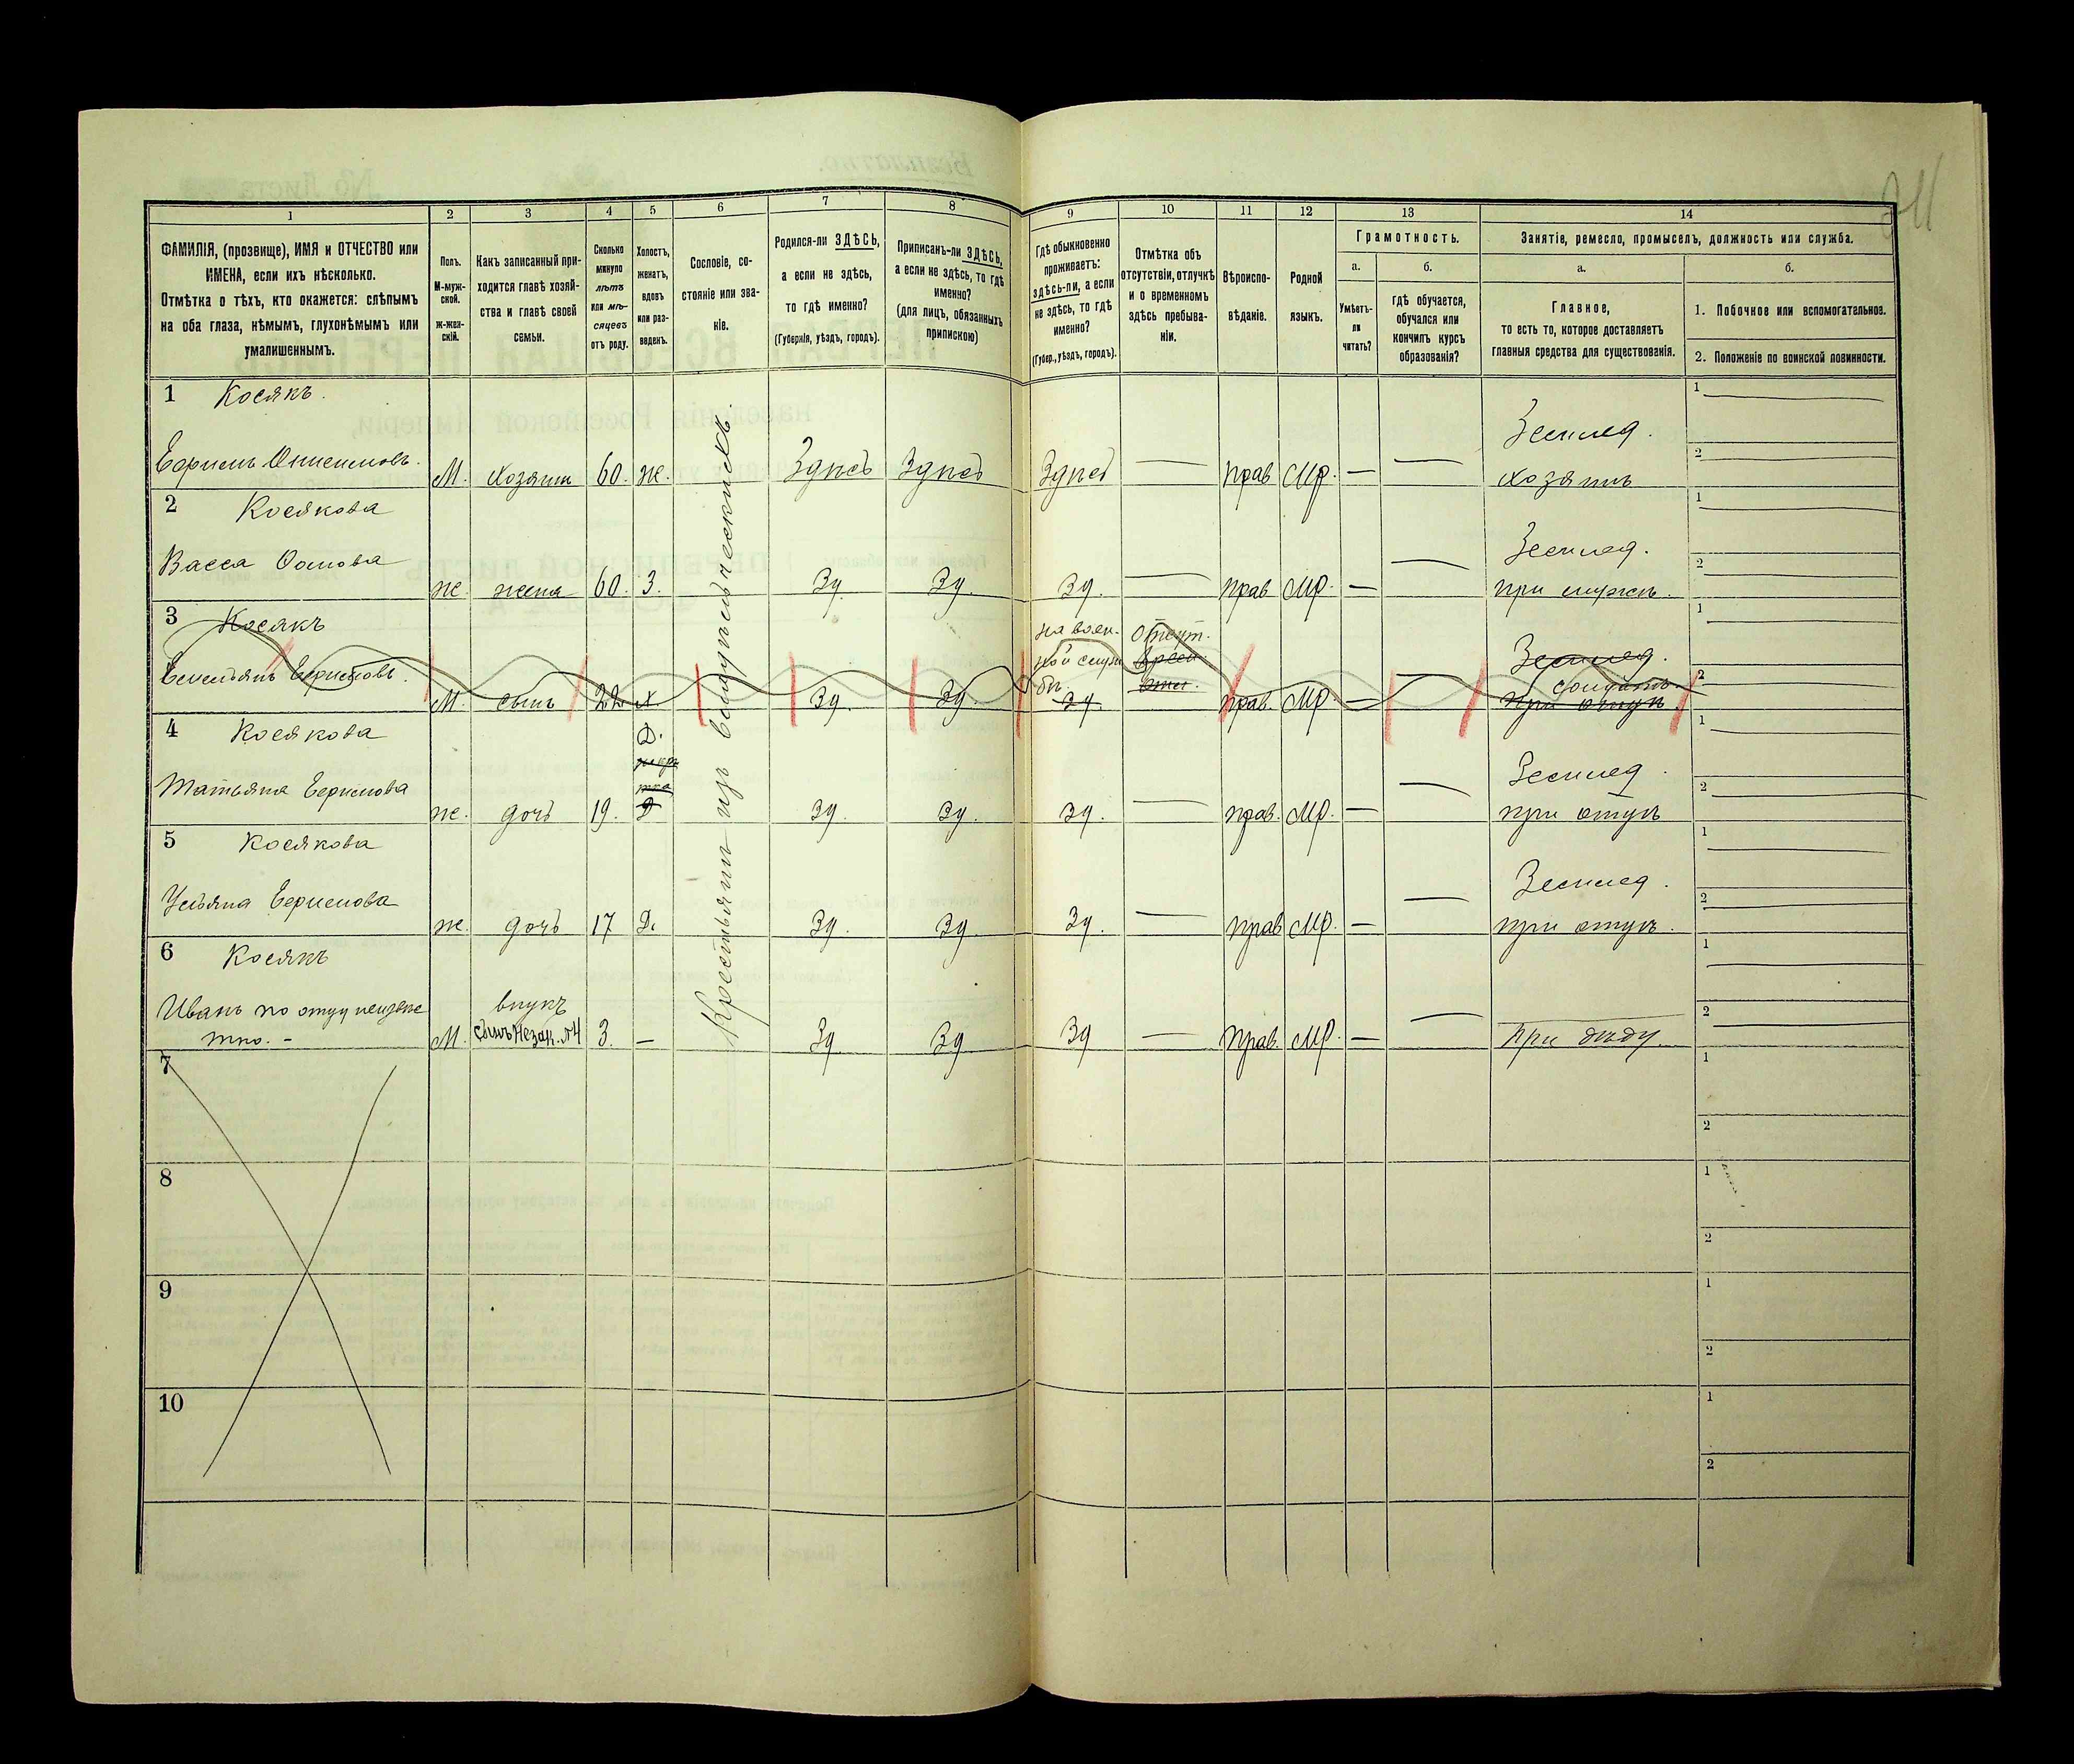 1 2 3 4 5 6 7 8 9 10 11 12 13 14
ФАМИЛІЯ, (прозвище), ИМЯ и ОТЧЕСТВО или
ИМЕНА, если ихъ нѣсколько.
Отмѣтка о тѣхъ, кто окажется: слѣпымъ
на оба глаза, нѣмымъ, глухонѣмымъ или
умалишеннымъ.
Полъ.
М-муж-
ской.
ж-жен-
скій.
Какъ записанный при-
ходится главѣ хозяй-
ства и главѣ своей
семьи.
Сколько
минуло
лѣтъ
или мѣ-
сяцевъ
отъ роду.
Холостъ,
женатъ,
вдовъ
или раз-
веденъ.
Сословіе, со-
стояніе или зва-
ніе.
Родился-ли ЗДѢСЬ,
а если не здѣсь,
то гдѣ именно?
(Губернія, уѣздъ, городъ).
Приписанъ-ли ЗДѢСЬ,
а если не здѣсь, то гдѣ
именно?
(для лицъ, обязанныхъ
припискою)
Гдѣ обыкновенно
проживаетъ:
здѣсь-ли, а если
не здѣсь, то гдѣ
именно?
(Губер., уѣздъ, городъ).
Отмѣтка объ
отсутствіи, отлучкѣ
и о временномъ
здѣсь пребыва-
ніи.
Вѣроиспо-
вѣданіе.
Родной
языкъ.
Грамотность.
а.
Умѣетъ-
ли
читать?
б.
гдѣ обучается,
обучался или
кончилъ курсъ
образованія?
Занятіе, ремесло, промыселъ, должность или служба.
а.
Главное,
то есть то, которое доставляетъ
главныя средства для существованія.
б.
1. Побочное или вспомогательное.
2. Положеніе по воинской повинности.
Крестьянинъ изъ
1 Косякъ.
Земллед.
М. хозяин 60. ж. Здѣсь Здѣсь Здѣсь — прав Мр. — — хозяинъ
2 Косякова
Васса Земллед.
ж. жена 60. З. Зд. Зд. Зд. — прав Мр. — — при мужѣ.
3 Косякъ
на воен-
ной служ
бѣ.
Отсут.
Земллед.
солдатъ
М. сынъ 22 х Зд. Зд. Зд. прав. Мр. — — при отцѣ
4 Косякова
Д.
Татьяна Земллед.
ж. дочь 19. Д Зд. Зд. Зд. — прав. Мр. — — при отцѣ
5 Косякова
Ульяна Земллед.
ж. дочь 17 Д. Зд. Зд. Зд. — прав Мр. — — при отцѣ.
6 Косякъ
Иванъ по отцу неизвѣс
тно. - внукъ
М. сынъ Незак. №4 3. — Зд. Зд. Зд — прав. Мр. — — при дѣду
7
8
9
10